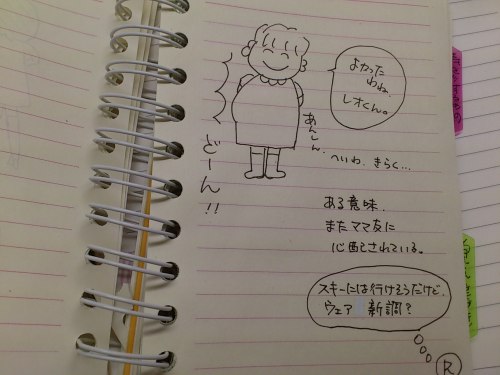 よかった
わね
レオくん。
あんしん、
へいわ、きらく…
どーん!!
ある意味、
またママ友に
心配されている。
スキーには行けそうだけど、
ウェア 新調?
R